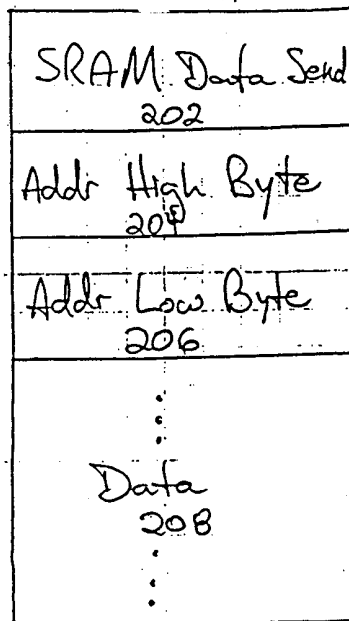 SRAM Data Send
202
Addr High Byte
204
Addr Low Byte
206
Data
208